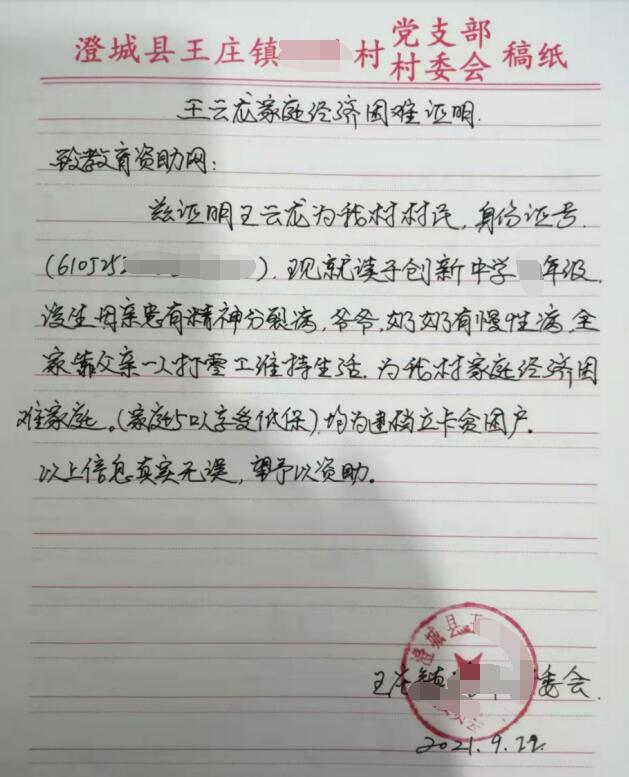 澄城县王庄镇 村党支部村委会稿纸
王云龙家庭经济困难证明.
致教育资助网：
兹证明王云龙为我村村民，身份证号
(61052 ). 现就读于创新中学 年级.
该生母亲患有精神分裂病，爷爷，奶奶有慢性病，全
家靠父亲一人打零工维持生活. 为我村家庭经济困
难家庭。(家庭5口享受低保). 均为建档立卡贫困户.
以上信息真实无误，望予以资助。
澄城县王
王庄镇 委会.
2021.9.22